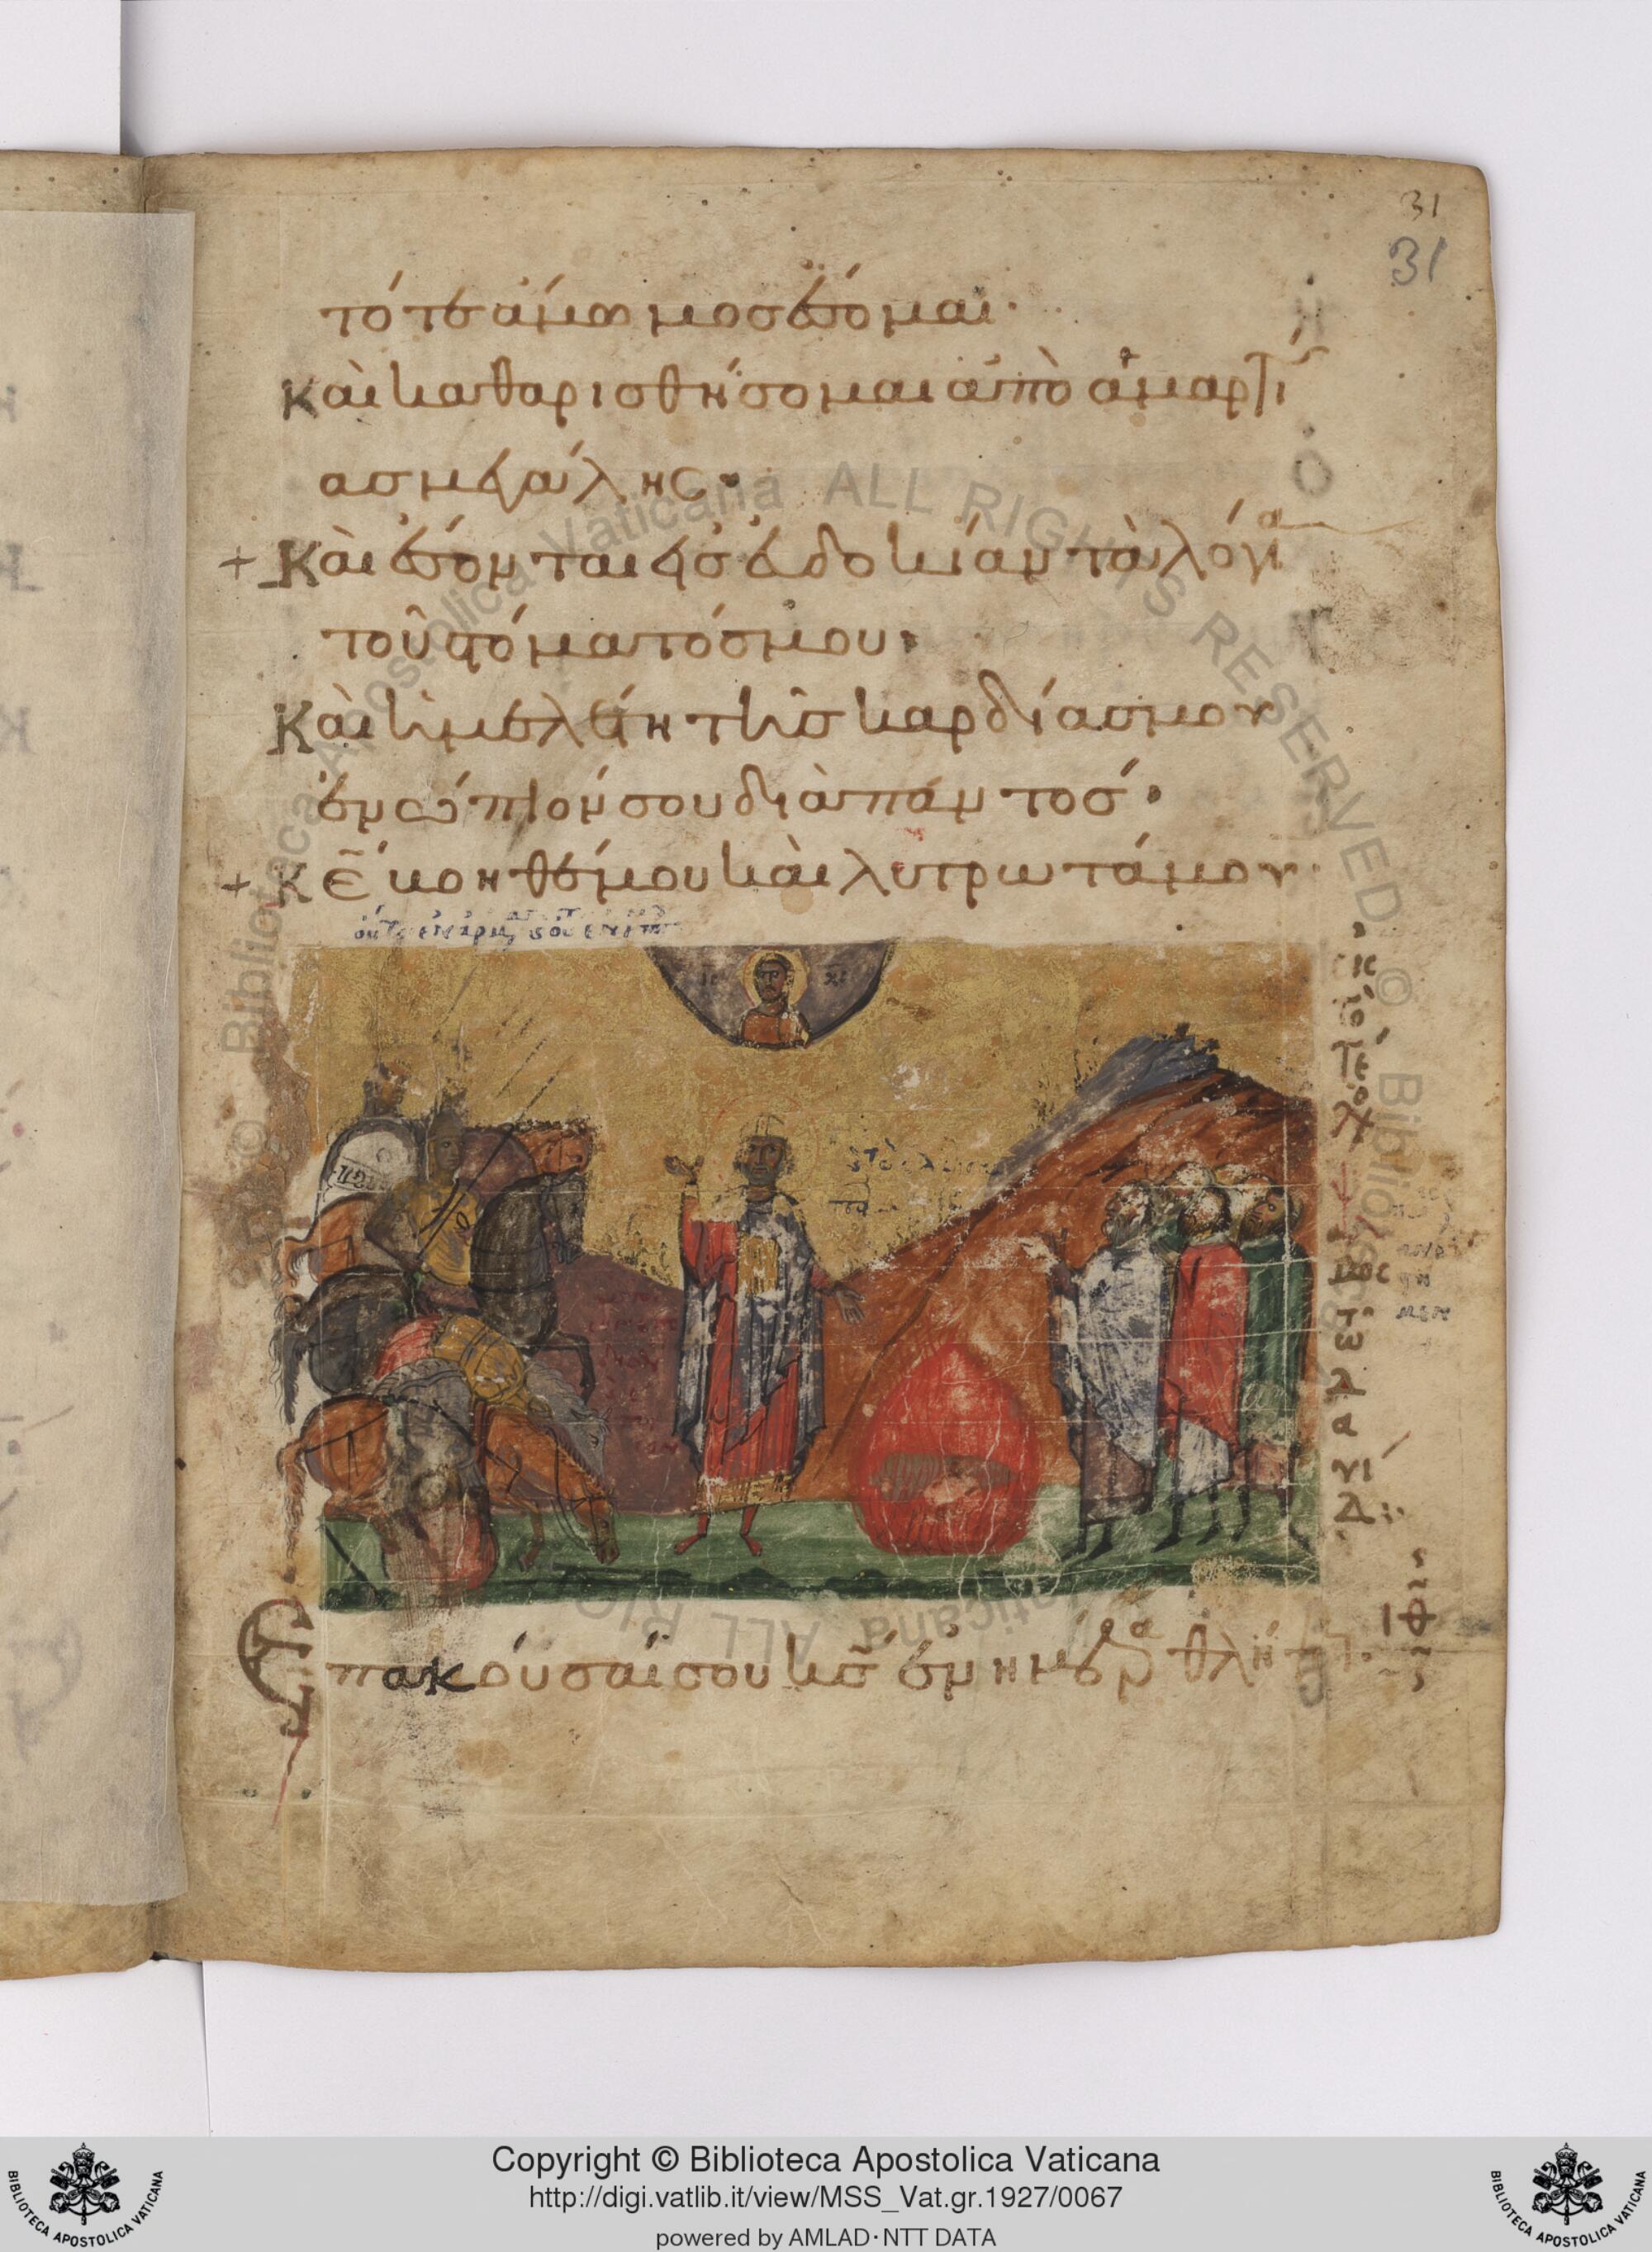 31
31
τότε ἄμωμος ἔσομαι·
Καὶ καθαρισθήσομαι ἀπὸ ἁμαρτί
ας μεγάλης·
+ Καὶ ἔσονται εἰς εὐδοκίαν τὰ λόγια
τοῦ στόματός μου·
Καὶ ἡ μελέτη τῆς καρδίας μου
ἐνώπιόν σου διὰ παντός·
+ Κε βοηθέ μου καὶ λυτρωτά μου·
εἰς
τὸ
τέ
λο
ψαλ
μὸς
τῶ
δα
υί
δ:·
ΙΘ
Ἐπακούσαί σου κς ἐν ἡμέρα θλί
© Biblioteca Apostolica Vaticana ALL RIGHTS RESERVED
Copyright © Biblioteca Apostolica Vaticana
http://digi.vatlib.it/view/MSS_Vat.gr.1927/0067
powered by AMLAD·NTT DATA
BIBLIOTECA APOSTOLICA VATICANA
BIBLIOTECA APOSTOLICA VATICANA